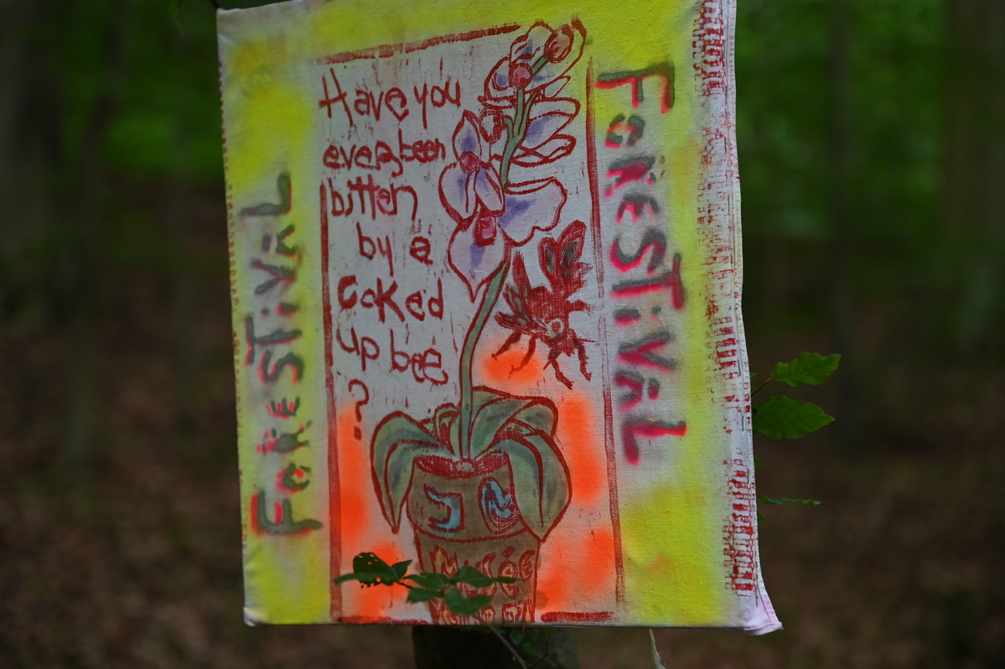 Have you
ever been
bitten
by a
Coked
up bee
?
FORESTiVAL
FORESTiVAL